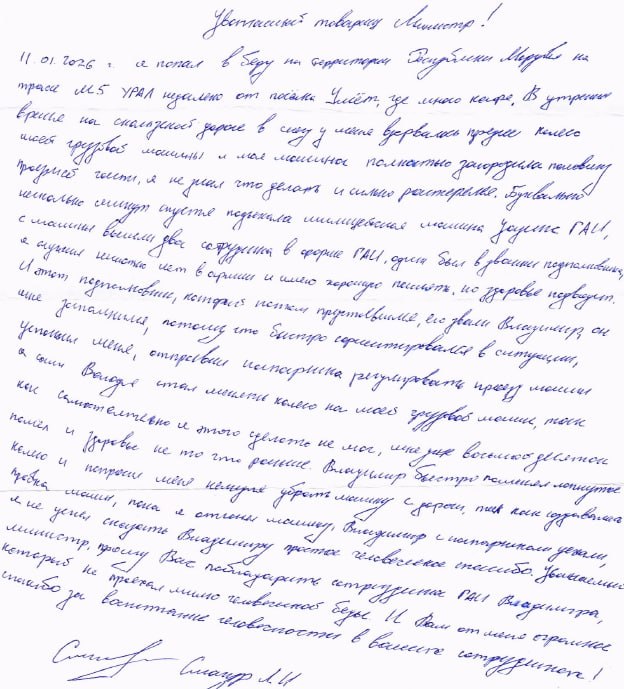 Уважаемый товарищ Министр!
11.01.2026 г. я попал в беду на территории Республики Мордовия на
трассе М5 УРАЛ недалеко от посёлка Умёт, где много кафе. В утреннее
время на скользкой дороге в снегу у меня взорвалось переднее колесо
моей грузовой машины и моя машина полностью загородила половину
проезжей части, я не знал что делать и сильно растерялся. Буквально
несколько минут спустя подъехала милицейская машина Уазик ГАИ,
с машины вышли два сотрудника в форме ГАИ, один был в звании подполковника,
я служил несколько лет в армии и имею хорошую память, но здоровье подводит.
И этот подполковник, который потом представился, его звали Владимир, он
мне запомнился, потому что быстро сориентировался в ситуации,
успокоил меня, отправил напарника регулировать проезд машин
а сам Володя стал менять колесо на моей грузовой машине, так
как самостоятельно я этого сделать не мог, мне уже восьмой десяток
пошёл и здоровье не то что раньше. Владимир быстро поменял лопнутое
колесо и попросил меня убрать машину с дороги, так как создавалась
пробка машин, пока я отгонял машину, Владимир с напарником уехали,
я не успел сказать Владимиру простое человеческое спасибо. Уважаемый
министр, прошу Вас поблагодарить сотрудника ГАИ Владимира,
который не проехал мимо человеческой беды. И Вам от меня огромное
спасибо за воспитание человечности в ваших сотрудниках!